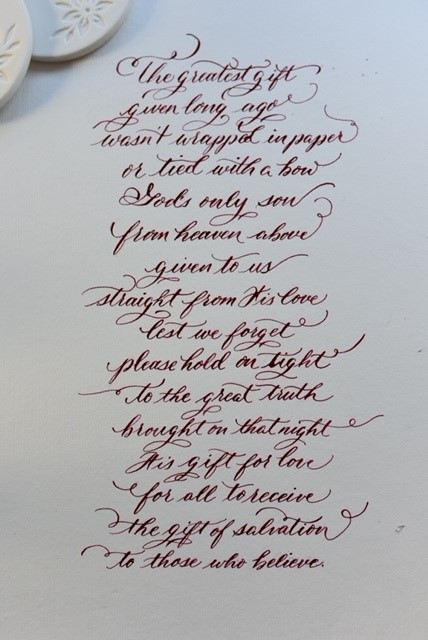 The greatest gift
given long ago
wasn't wrapped in paper
or tied with a bow
God's only son
from heaven above
given to us
straight from His love
lest we forget
please hold on tight
to the great truth
brought on that night
His gift for love
for all to receive
the gift of salvation
to those who believe.